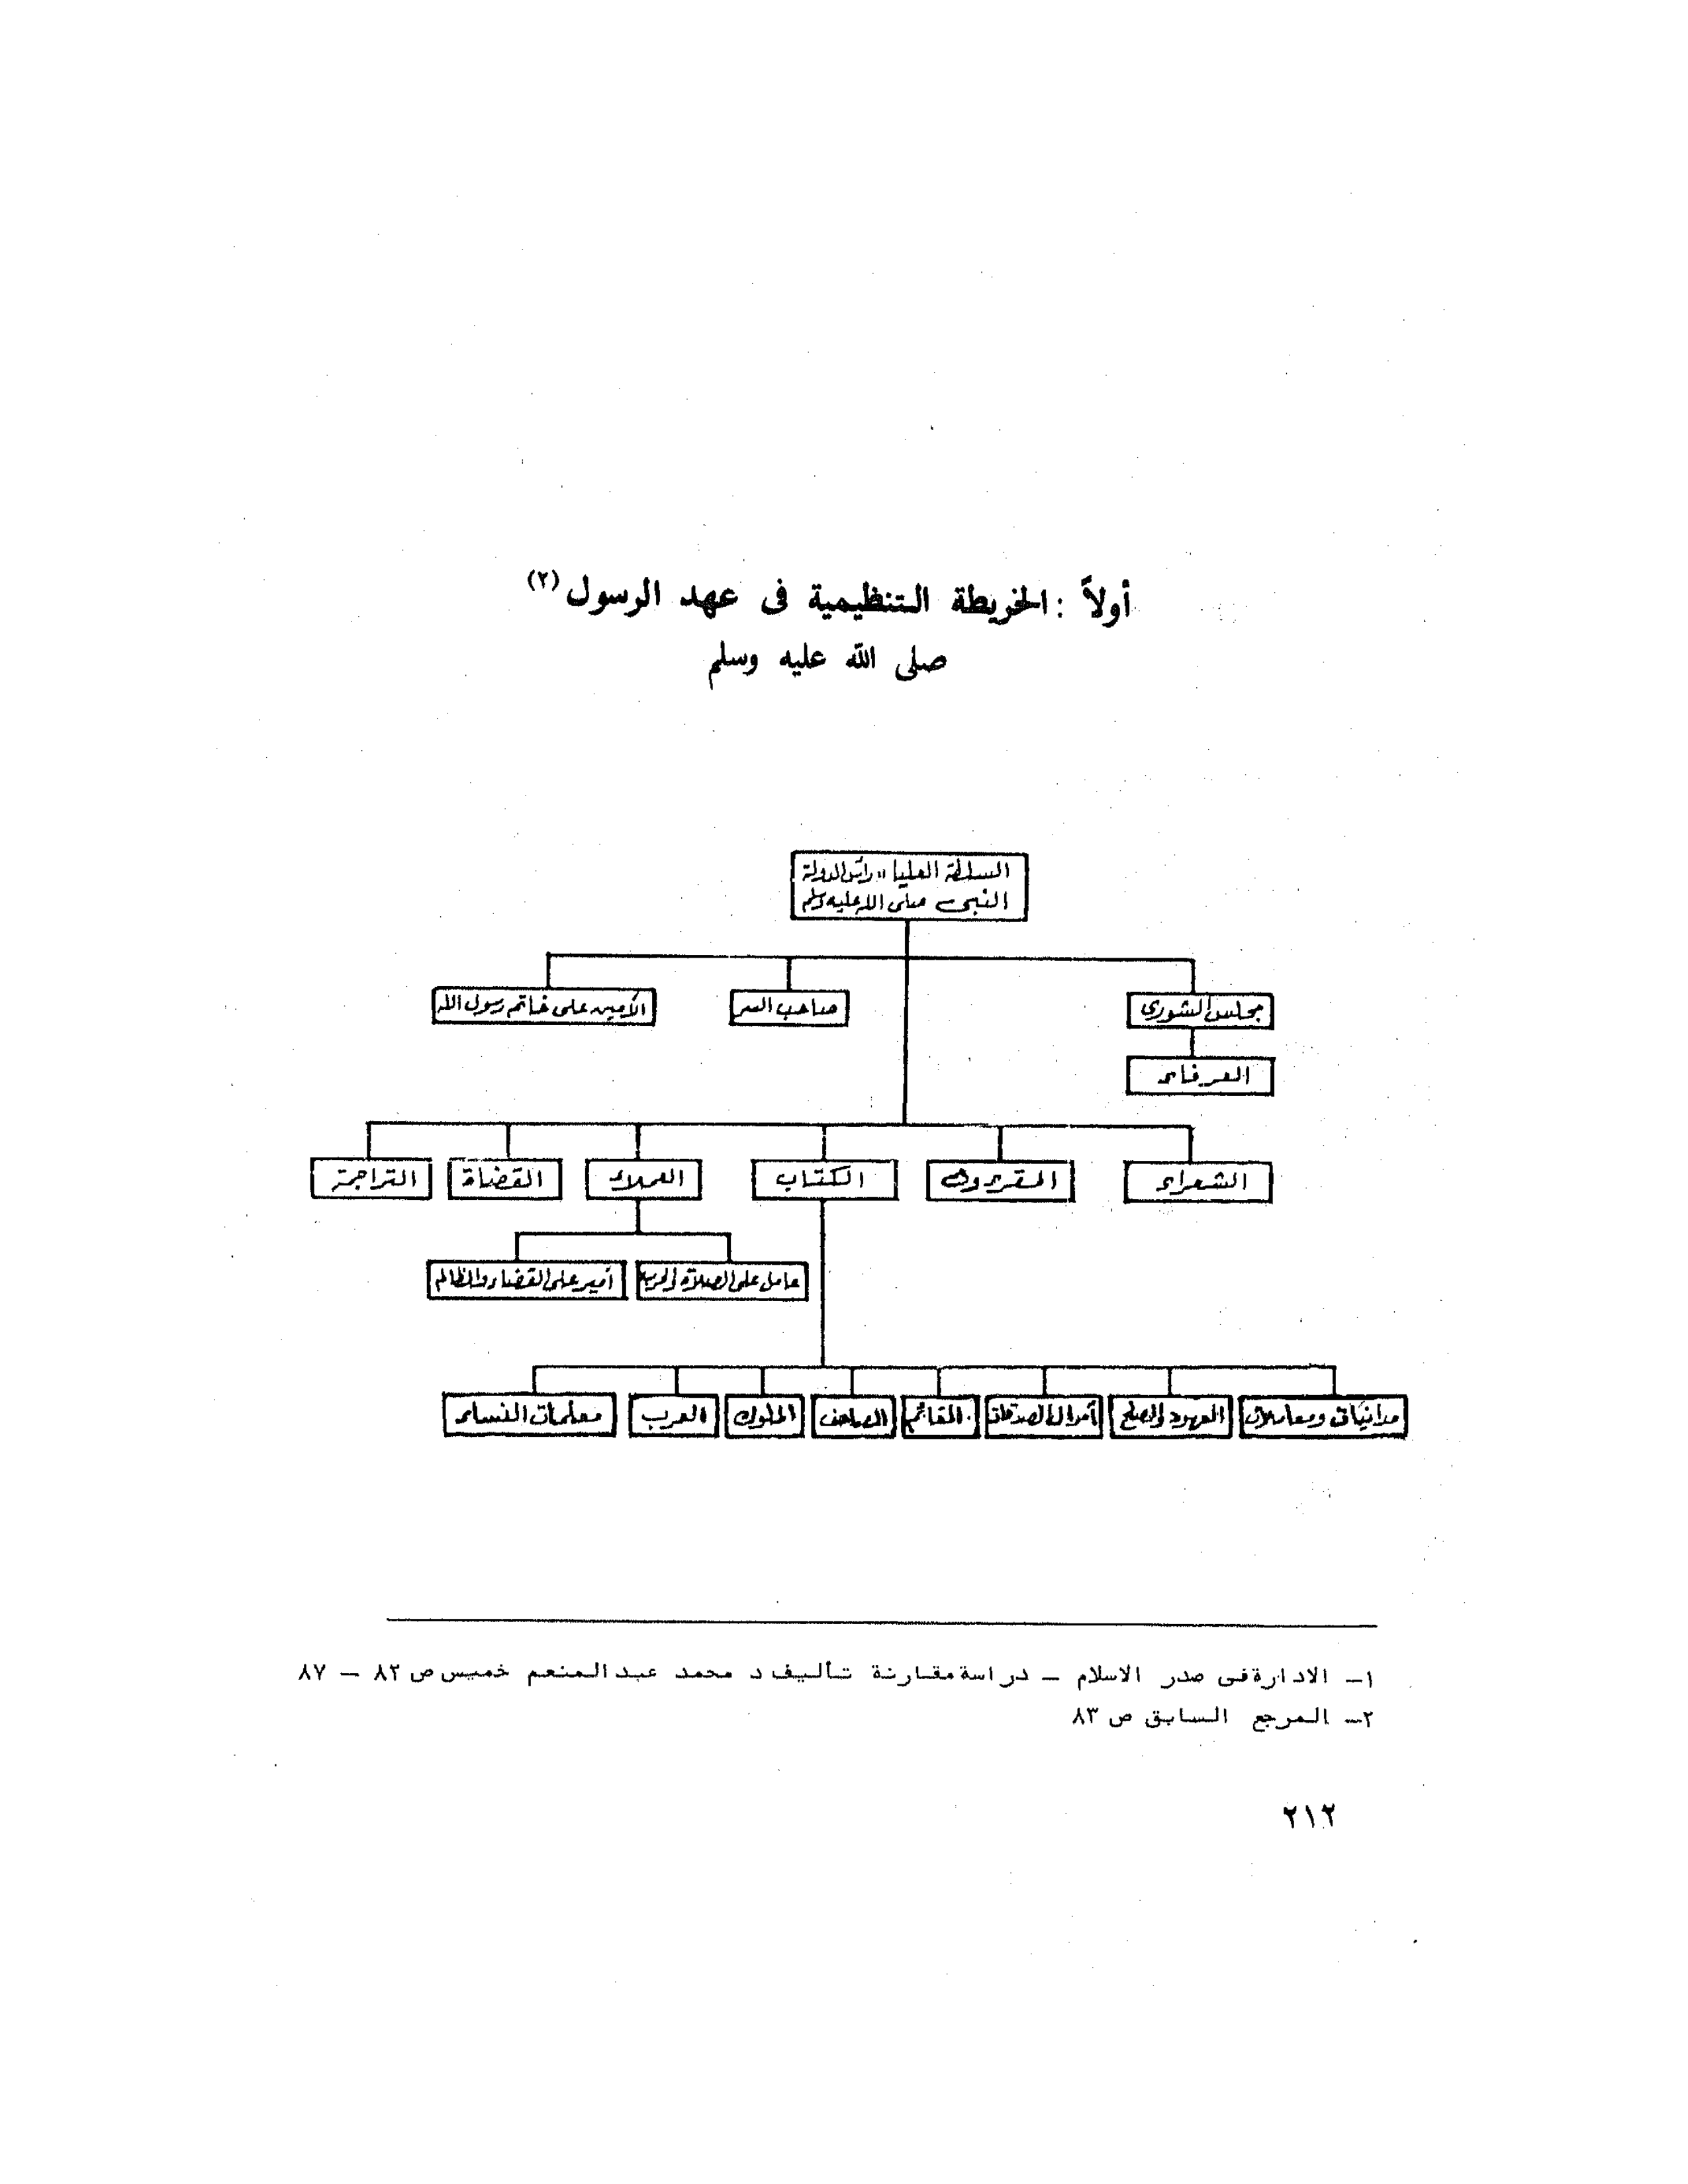 أولاً : الخريطة التنظيمية فى عهد الرسول (٢)
صلى الله عليه وسلم
السلطة العليا " رأس الدولة
النبى صلى الله عليه وسلم
مجلس الشورى
صاحب السر
الأمين على خاتم رسول الله
العرفاء
الشعراء
الكتاب
العملاء
القضاة
التراجمة
عامل على الصلاة والحرب
أمير على القضاء والمظالم
مداينات ومعاملات
العهود والصلح
أموال الصدقات
المغانم
المصاحف
الملوك
العرب
معلمات النساء
١- الادارة فى صدر الاسلام - دراسة مقارنة تأليف د محمد عبد المنعم خميس ص ٨٢ - ٨٧
٢- المرجع السابق ص ٨٣
٢١٢